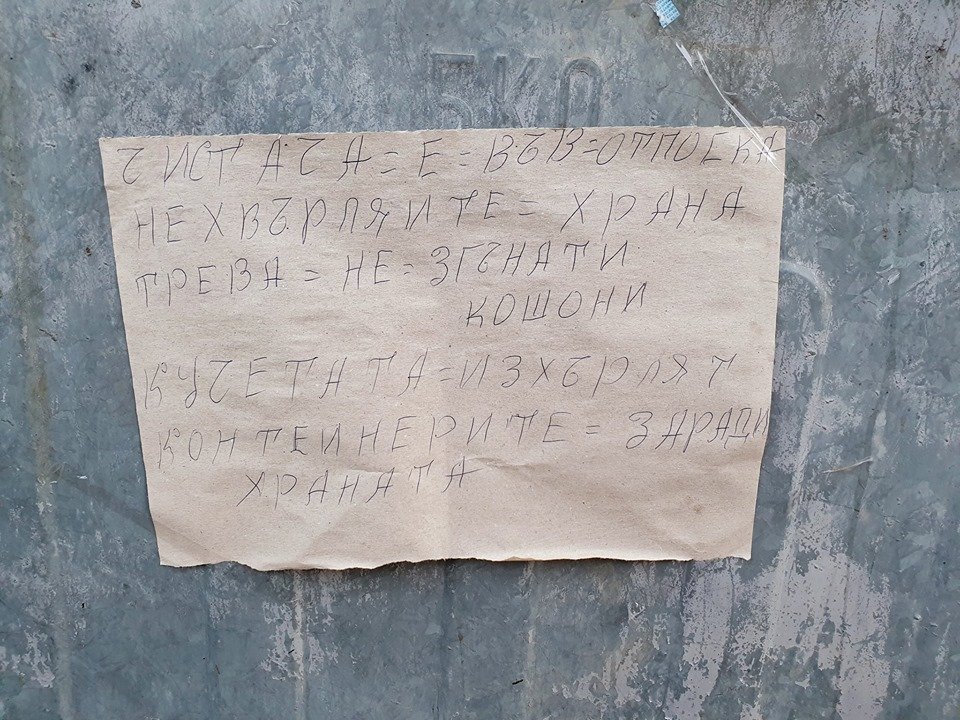 БКО
ЧИСТАЧА = Е = ВЪВ = ОТПОСКА
НЕ ХВЪРЛЯИТЕ = ХРАНА
ТРЕВА = НЕ = ЗГЪНАТИ
КОШОНИ
КУЧЕТАТА = ИЗХЪРЛЯТ
КОНТЕИНЕРИТЕ = ЗАРАДИ
ХРАНАТА